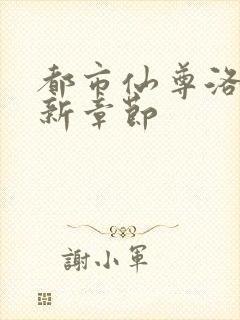 都市仙尊洛
新章节
謝小軍